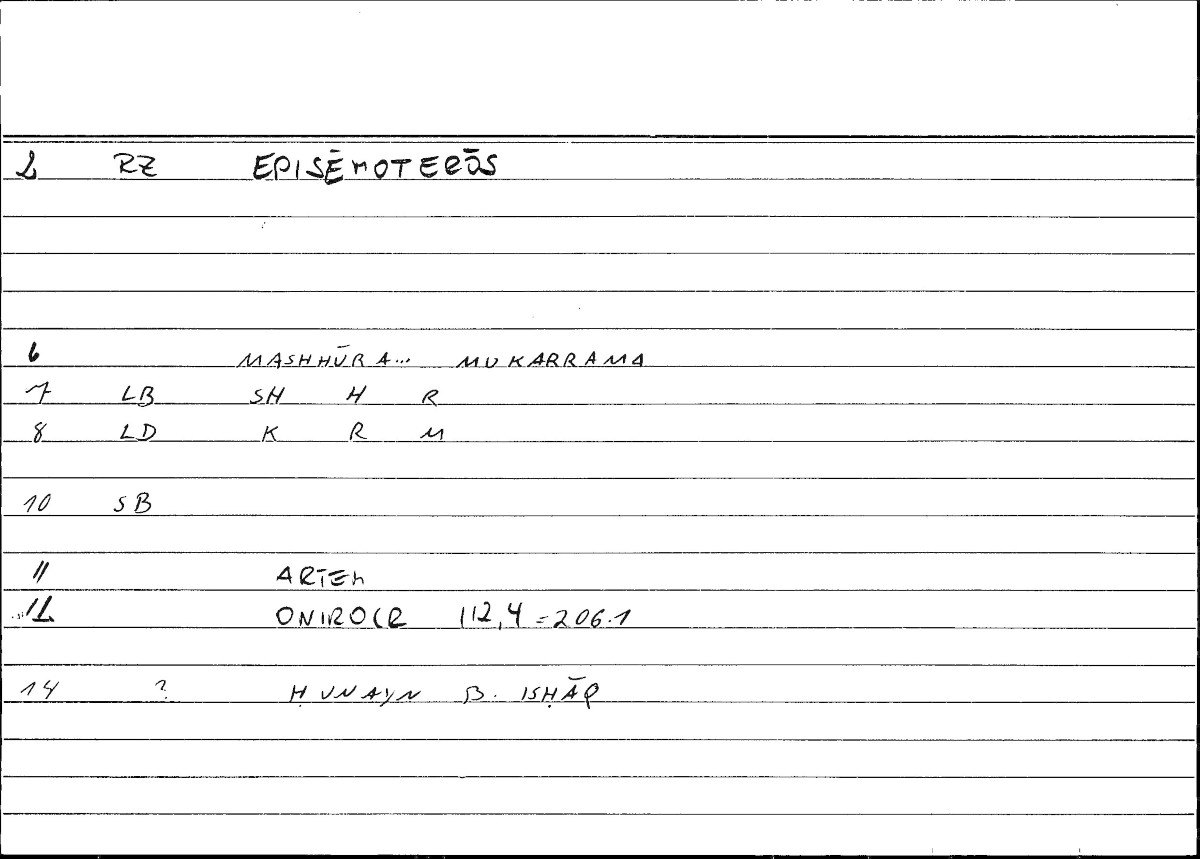 2 RZ EPISĒMOTERŌS
6 MASHHŪRA... MUKARRAMA
7 LB SH H R
8 LD K R M
10 SB
11 ARTEM
12 ONIROCR 112,4 = 206.1
14 ? ḤUNAYN B. ISḤĀQ